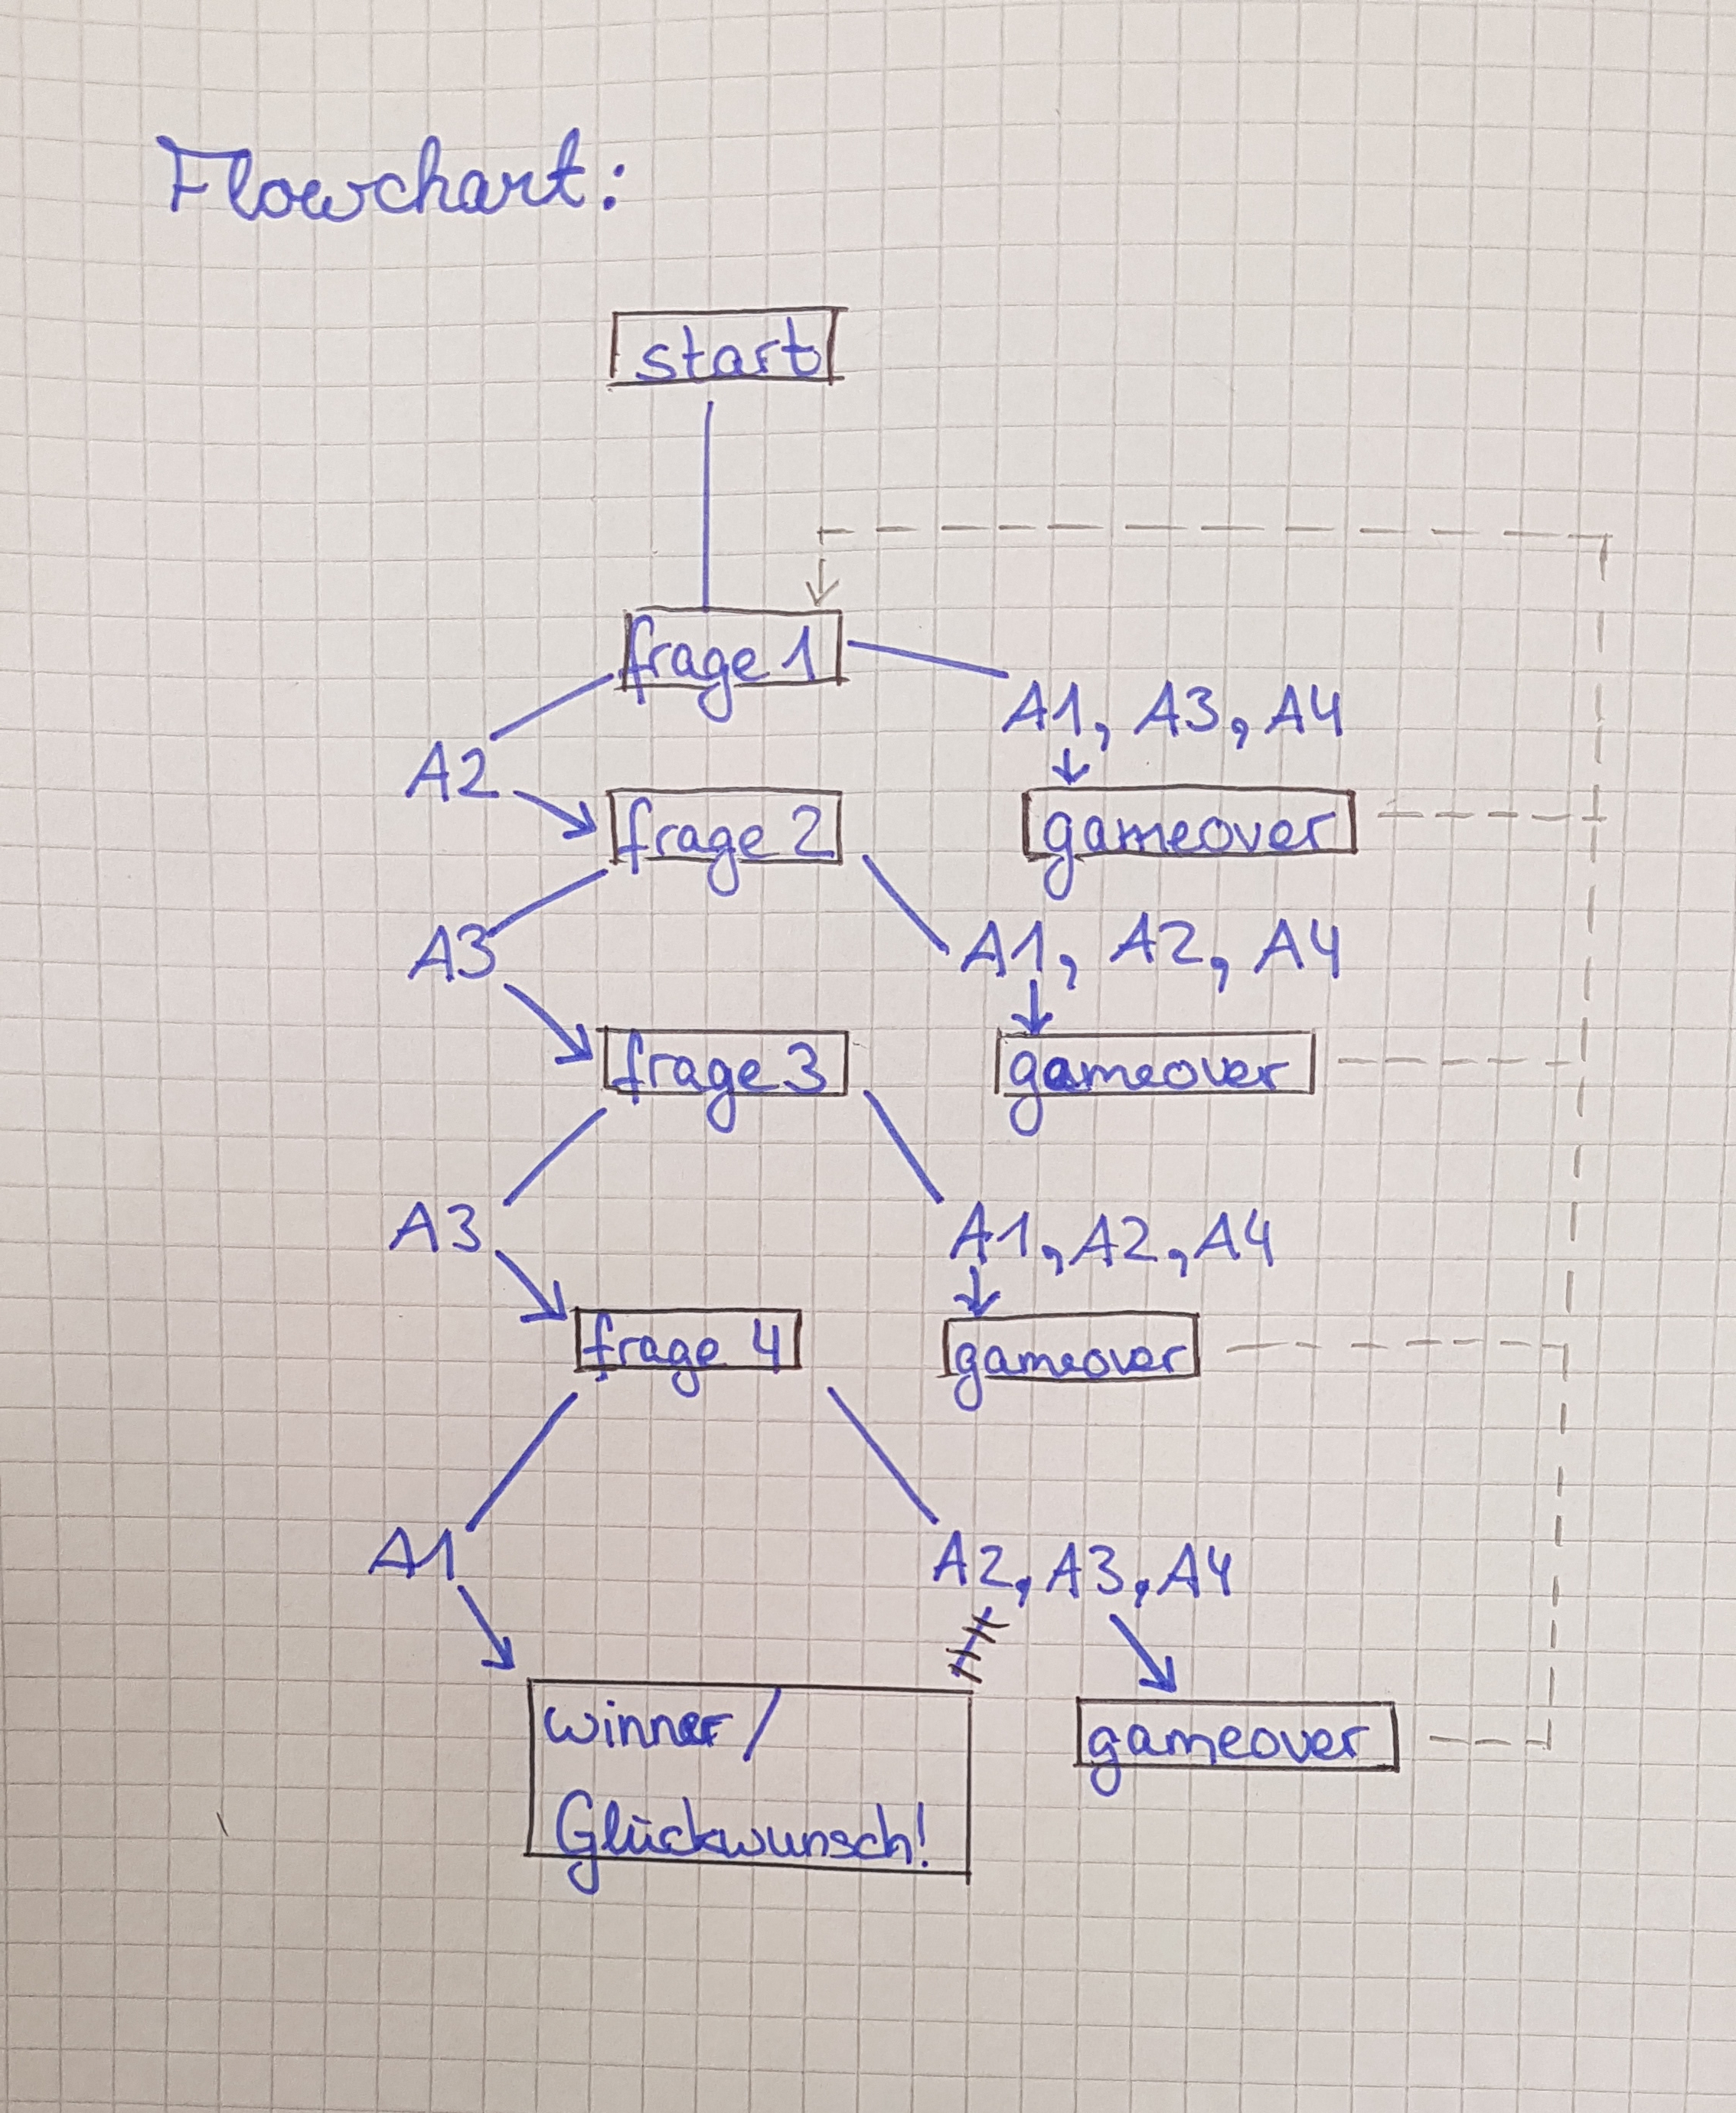 Flowchart:
start
frage 1
A1, A3, A4
A2
frage 2
gameover
A3
A1, A2, A4
frage 3
gameover
A3
A1, A2, A4
frage 4
gameover
A1
A2, A3, A4
winner/
Glückwunsch!
gameover